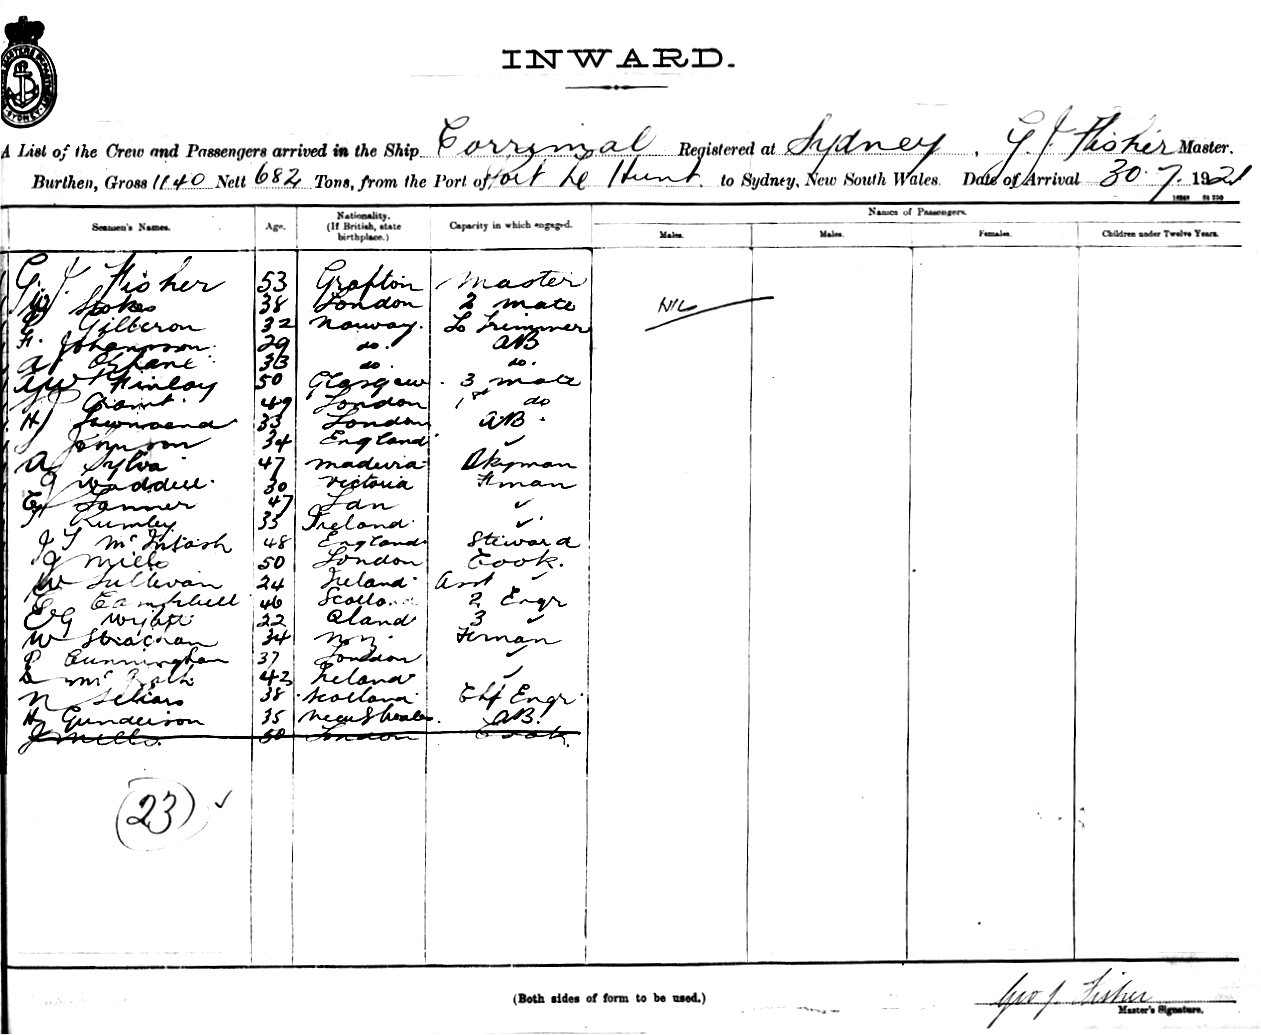 INWARD.
SYDNEY
A List of the Crew and Passengers arrived in the Ship Corrimal Registered at Sydney, G. J. Fisher Master.
Burthen, Gross 1140 Nett 682 Tons, from the Port of Hunt to Sydney, New South Wales. Date of Arrival 30.7.1921
Seamen's Names. Age. Nationality. (If British, state birthplace.) Capacity in which engaged. Names of Passengers.
Males. Males. Females. Children under Twelve Years.
G. J. Fisher 53 Grafton Master
W Stokes 38 London 2 mate NIL
Gilberon 32 Norway. Trimmer
F. Johansson 29 do. AB
33 do. do.
Finlay 50 Glasgow. 3 mate
Grant 49 London 1st do
H Townsend 33 London AB
Johnson 34 England ✓
A Sylva 47 madeira Dkyman
J Waddell. 30 Victoria Fman
Tanner 47 ✓
Rumley 35 Ireland ✓
J T McIntosh 48 England Steward
J Mills 50 London Cook.
W Sullivan 24 Ireland Asst ✓
Campbell 46 Scotland 2 Engr
EG Wyatt 22 Qland 3 ✓
W Strachan 34 N.Z. Fman
P Cunningham 37 London ✓
Mc 42 Ireland ✓
N Sellars 38 Scotland Chf Engr
H Gunderson 35 AB.
J Mills. 50 London Cook.
23 ✓
(Both sides of form to be used.)
Geo J. Fisher
Master's Signature.